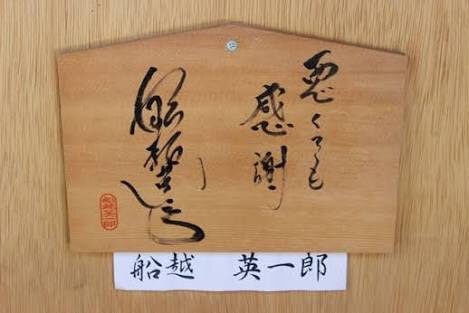 悪くても
感謝
船越英一郎
船越 英一郎